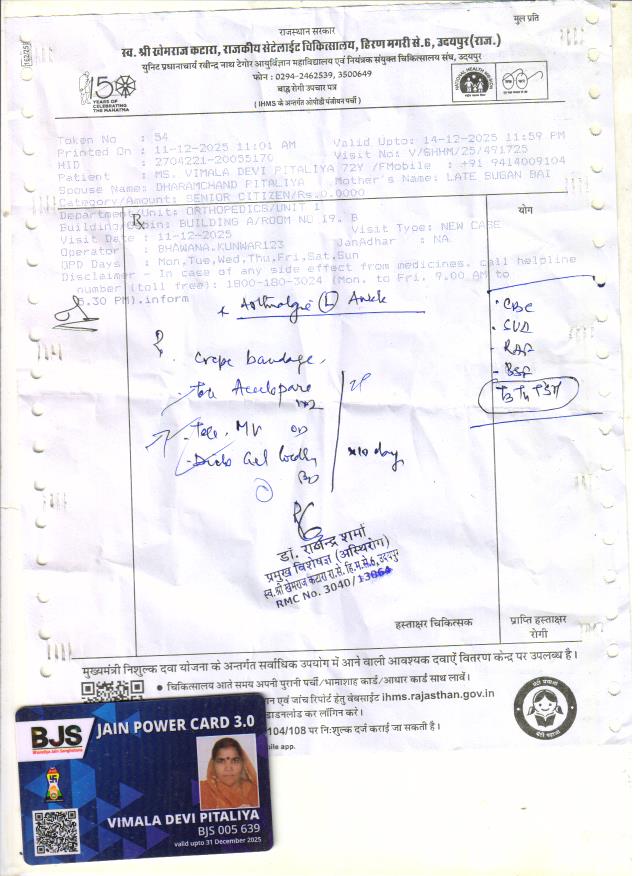 मुल प्रति
राजस्थान सरकार
स्व. श्री खेमराज कटारा, राजकीय सेटेलाईट चिकित्सालय, हिरण मगरी से.6, उदयपुर(राज.)
युनिट प्रधानाचार्य रवीन्द्र नाथ टेगोर आयुर्विज्ञान महाविद्यालय एवं नियंत्रक संयुक्त चिकित्सालय संघ, उदयपुर
फोन : 0294-2462539, 3500649
बाह्य रोगी उपचार पत्र
( IHMS के अन्तर्गत ओपीडी पंजीयन पर्ची )
150
YEARS OF
CELEBRATING
THE MAHATMA
NATIONAL HEALTH MISSION
Token No : 54
Printed On : 11-12-2025 11:01 AM Valid Upto: 14-12-2025 11:59 PM
HID : 2704221-20055170 Visit No: V/GHHM/25/491725
Patient : MS. VIMALA DEVI PITALIYA 72Y /FMobile : +91 9414009104
Spouse Name: DHARAMCHAND PITALIYA Mother's Name: LATE SUGAN BAI
Category/Amount: SENIOR CITIZEN/Rs.0.0000
Department/Unit: ORTHOPEDICS/UNIT I
योग
Rx
Building: BUILDING A/ROOM NO 19. B
Visit Date : 11-12-2025 Visit Type: NEW CASE
Operator : BHAWANA.KUNWAR123 JanAdhar : NA
OPD Days : Mon,Tue,Wed,Thu,Fri,Sat,Sun
Disclaimer - In case of any side effect from medicines, call helpline
number (toll free): 1800-180-3024 (Mon. to Fri. 9.00 AM to
6.30 PM).inform
Arthralgia (L) Ankle
CBC
RAF
T3 T4 TSH
Crepe bandage
MV OD
Gel locally
x10 day
BD
डॉ. रविन्द्र शर्मा
प्रमुख विशेषज्ञ (अस्थिरोग)
स्व.श्री खेमराज कटारा रा.से. हि.म.से.6, उदयपुर
RMC No. 3040/13864
हस्ताक्षर चिकित्सक
प्राप्ति हस्ताक्षर
रोगी
मुख्यमंत्री निशुल्क दवा योजना के अन्तर्गत सर्वाधिक उपयोग में आने वाली आवश्यक दवाऐं वितरण केन्द्र पर उपलब्ध है।
• चिकित्सालय आते समय अपनी पुरानी पर्ची/भामाशाह कार्ड/आधार कार्ड साथ लावें।
एवं जांच रिपोर्ट हेतु वेबसाईट ihms.rajasthan.gov.in
डाउनलोड कर लॉगिन करें।
104/108 पर निःशुल्क दर्ज कराई जा सकती है।
bile app.
BJS
Bharatiya Jain Sanghatana
JAIN POWER CARD 3.0
VIMALA DEVI PITALIYA
BJS 005 639
valid upto 31 December 2025